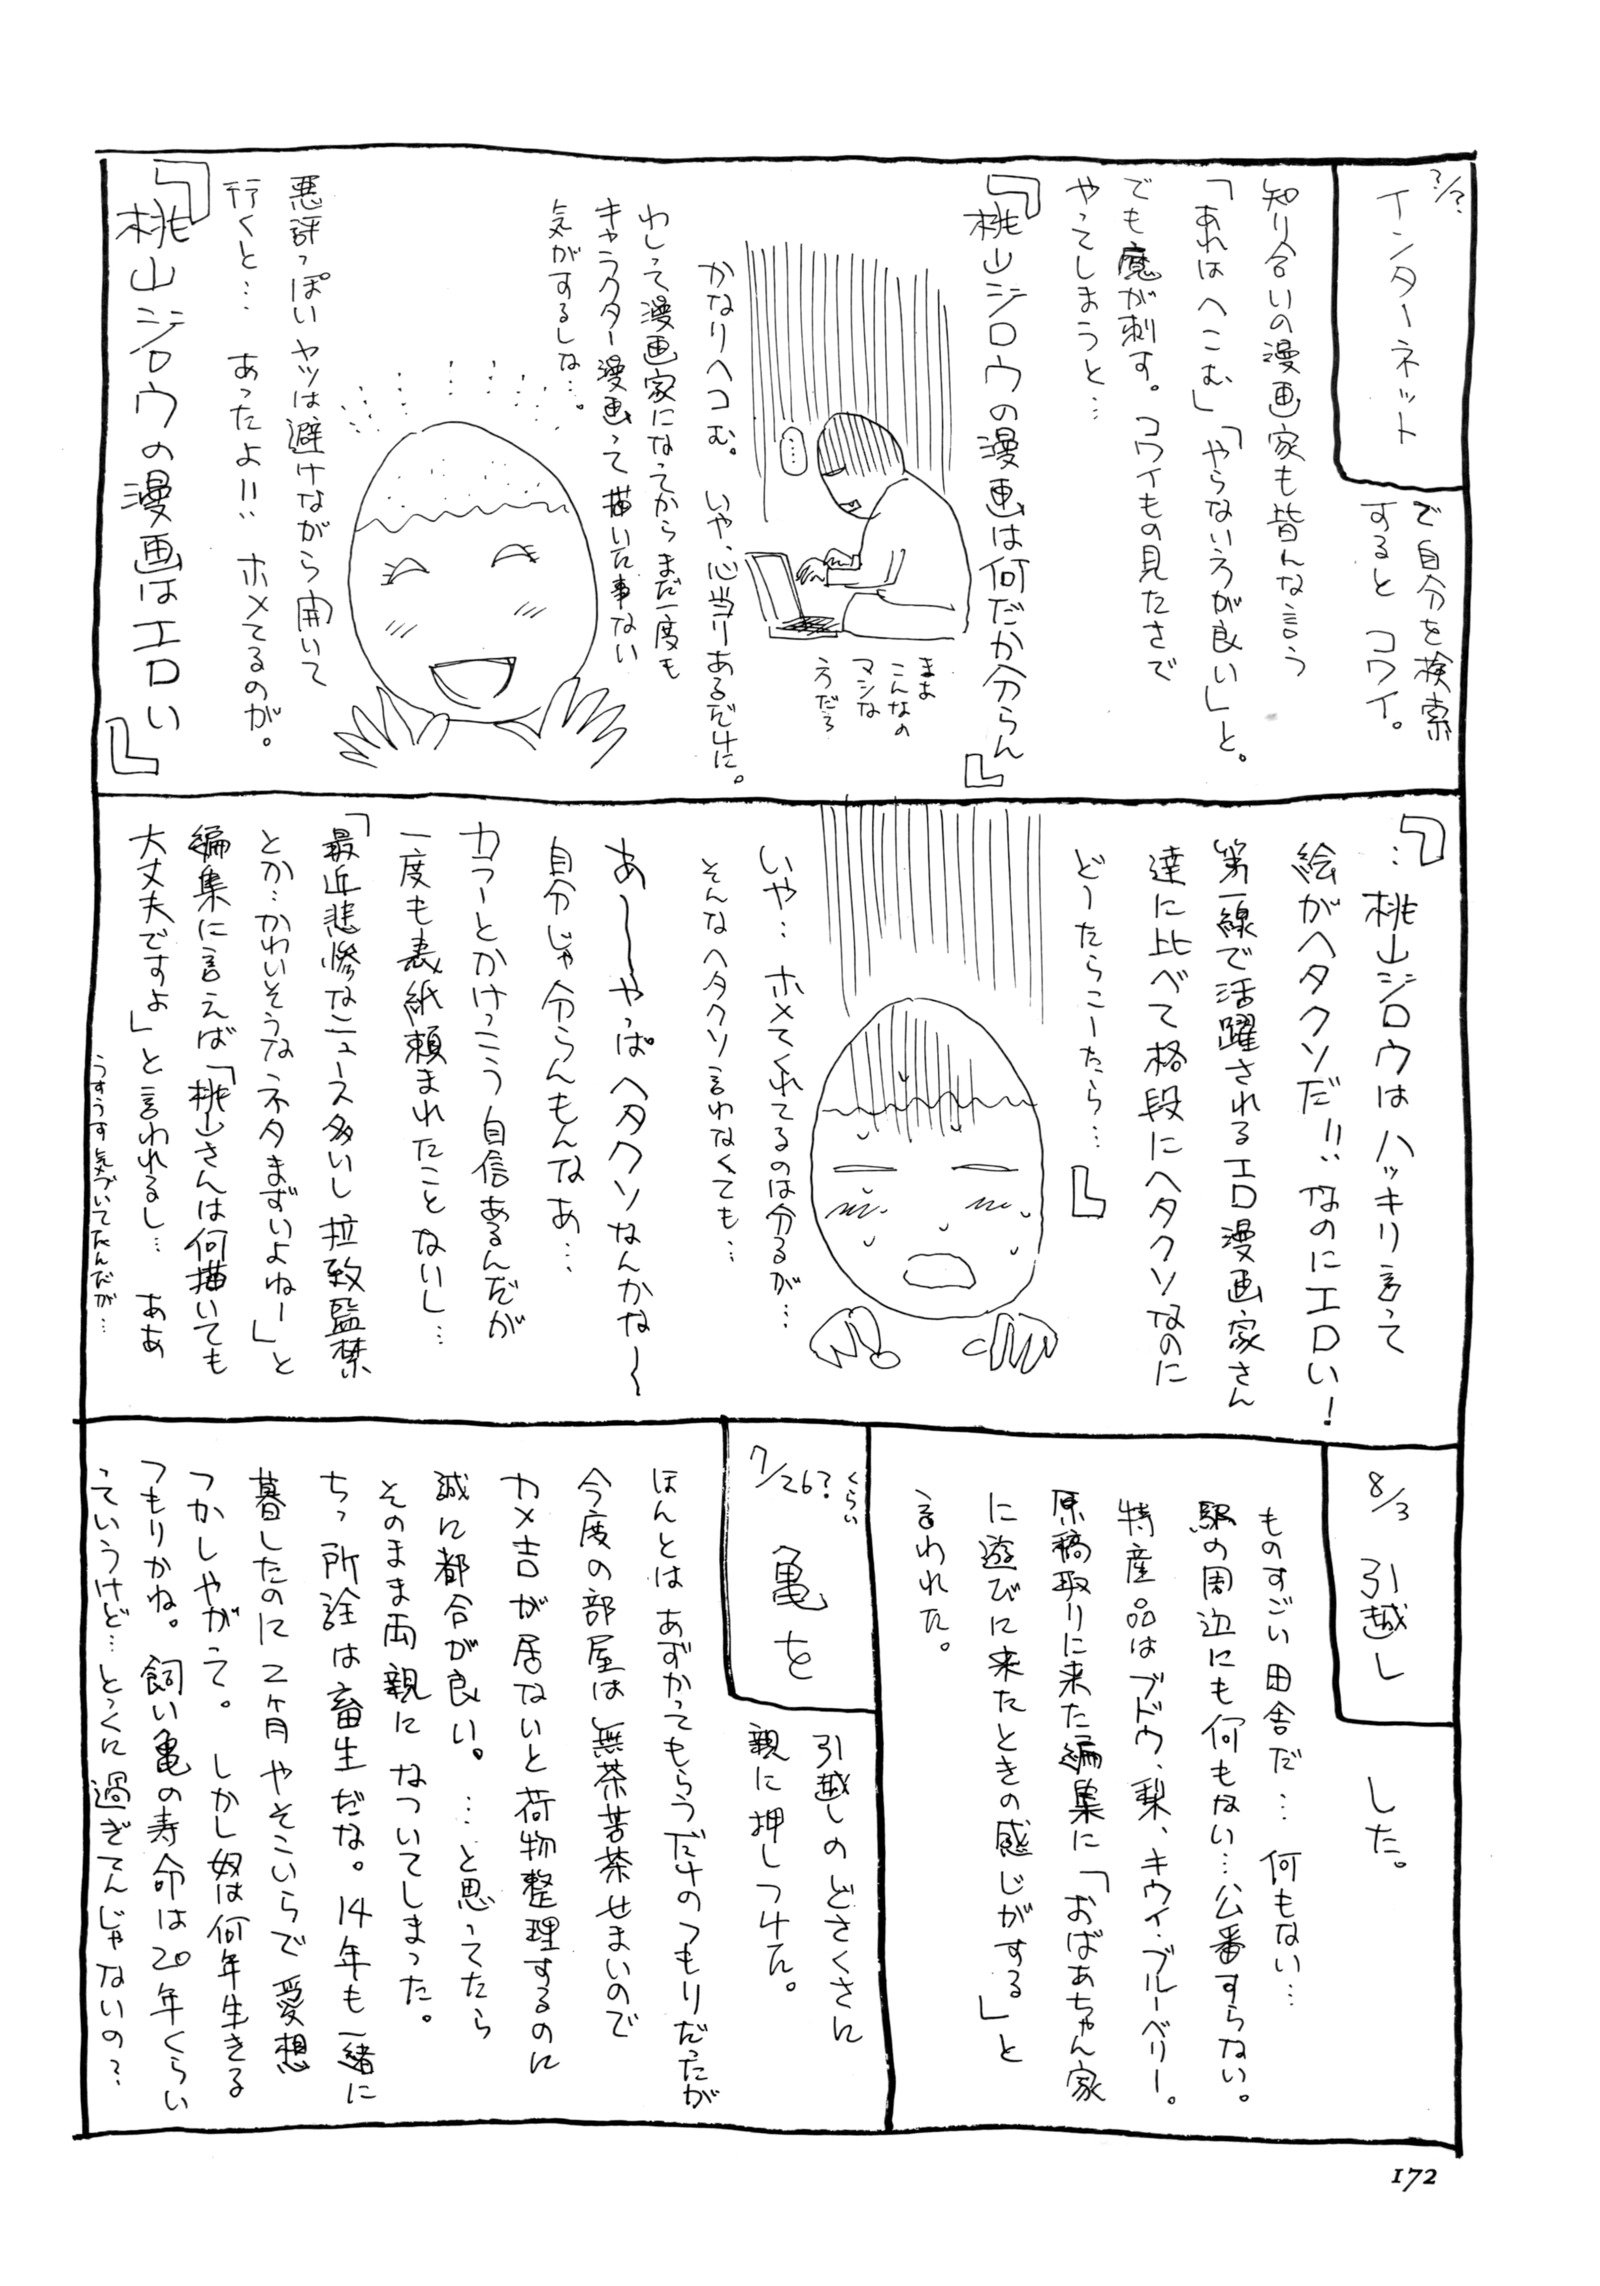 ?/?
インターネット
で自分を検索
すると コワイ。
知り合いの漫画家も皆んな言う
「あれはへこむ」「やらないろが良い」と。
でも魔が刺す。コワイもの見たさで
やってしまうと…
『桃山ジロウの漫画は何だか分らん』
……
まぁ
こんなの
マシな
ろだろ
かなりヘコむ。 いや、心当りあるだけに。
わしって漫画家になってからまだ一度も
キャラクター漫画って描いた事ない
気がするしな…。
悪評っぽいヤツは避けながら開いて
行くと… あったよ!! ホメてるのが。
『桃山ジロウの漫画はエロい』
『…桃山ジロウはハッキリ言って
絵がヘタクソだ!! なのにエロい!
第一線で活躍されるエロ漫画家さん
達に比べて格段にヘタクソなのに
どーたらこーたら…』
いや… ホメてくれてるのは分るが…
そんなヘタクソ言わなくても…
あ〜〜やっぱヘタクソなんかな〜
自分じゃ分らんもんなぁ…
カラーとかけっこう自信あるんだが
一度も表紙頼まれたことないし…
「最近悲惨なニュース多いし拉致監禁
とか…かわいそうなネタまずいよねー」と
編集に言えば「桃山さんは何描いても
大丈夫ですよ」と言われるし… ああ
うすうす気づいてたんだが…
8/3 引越し
した。
ものすごい田舎だ… 何もない…
駅の周辺にも何もない…公番すらない。
特産品はブドウ、梨、キウイ・ブルーベリー。
原稿取りに来た編集に「おばあちゃん家
に遊びに来たときの感じがする」と
言われた。
7/26?くらい
亀を
引越しのどさくさに
親に押しつけた。
ほんとはあずかってもらうだけのつもりだったが
今度の部屋は無茶苦茶せまいので
カメ吉が居ないと荷物整理するのに
誠に都合が良い。…と思ってたら
そのまま両親になついてしまった。
ちっ所詮は畜生だな。14年も一緒に
暮したのに2ヶ月やそこいらで愛想
つかしやがって。 しかし奴は何年生きる
つもりかね。飼い亀の寿命は20年くらい
っていうけど…とっくに過ぎてんじゃないの?
172